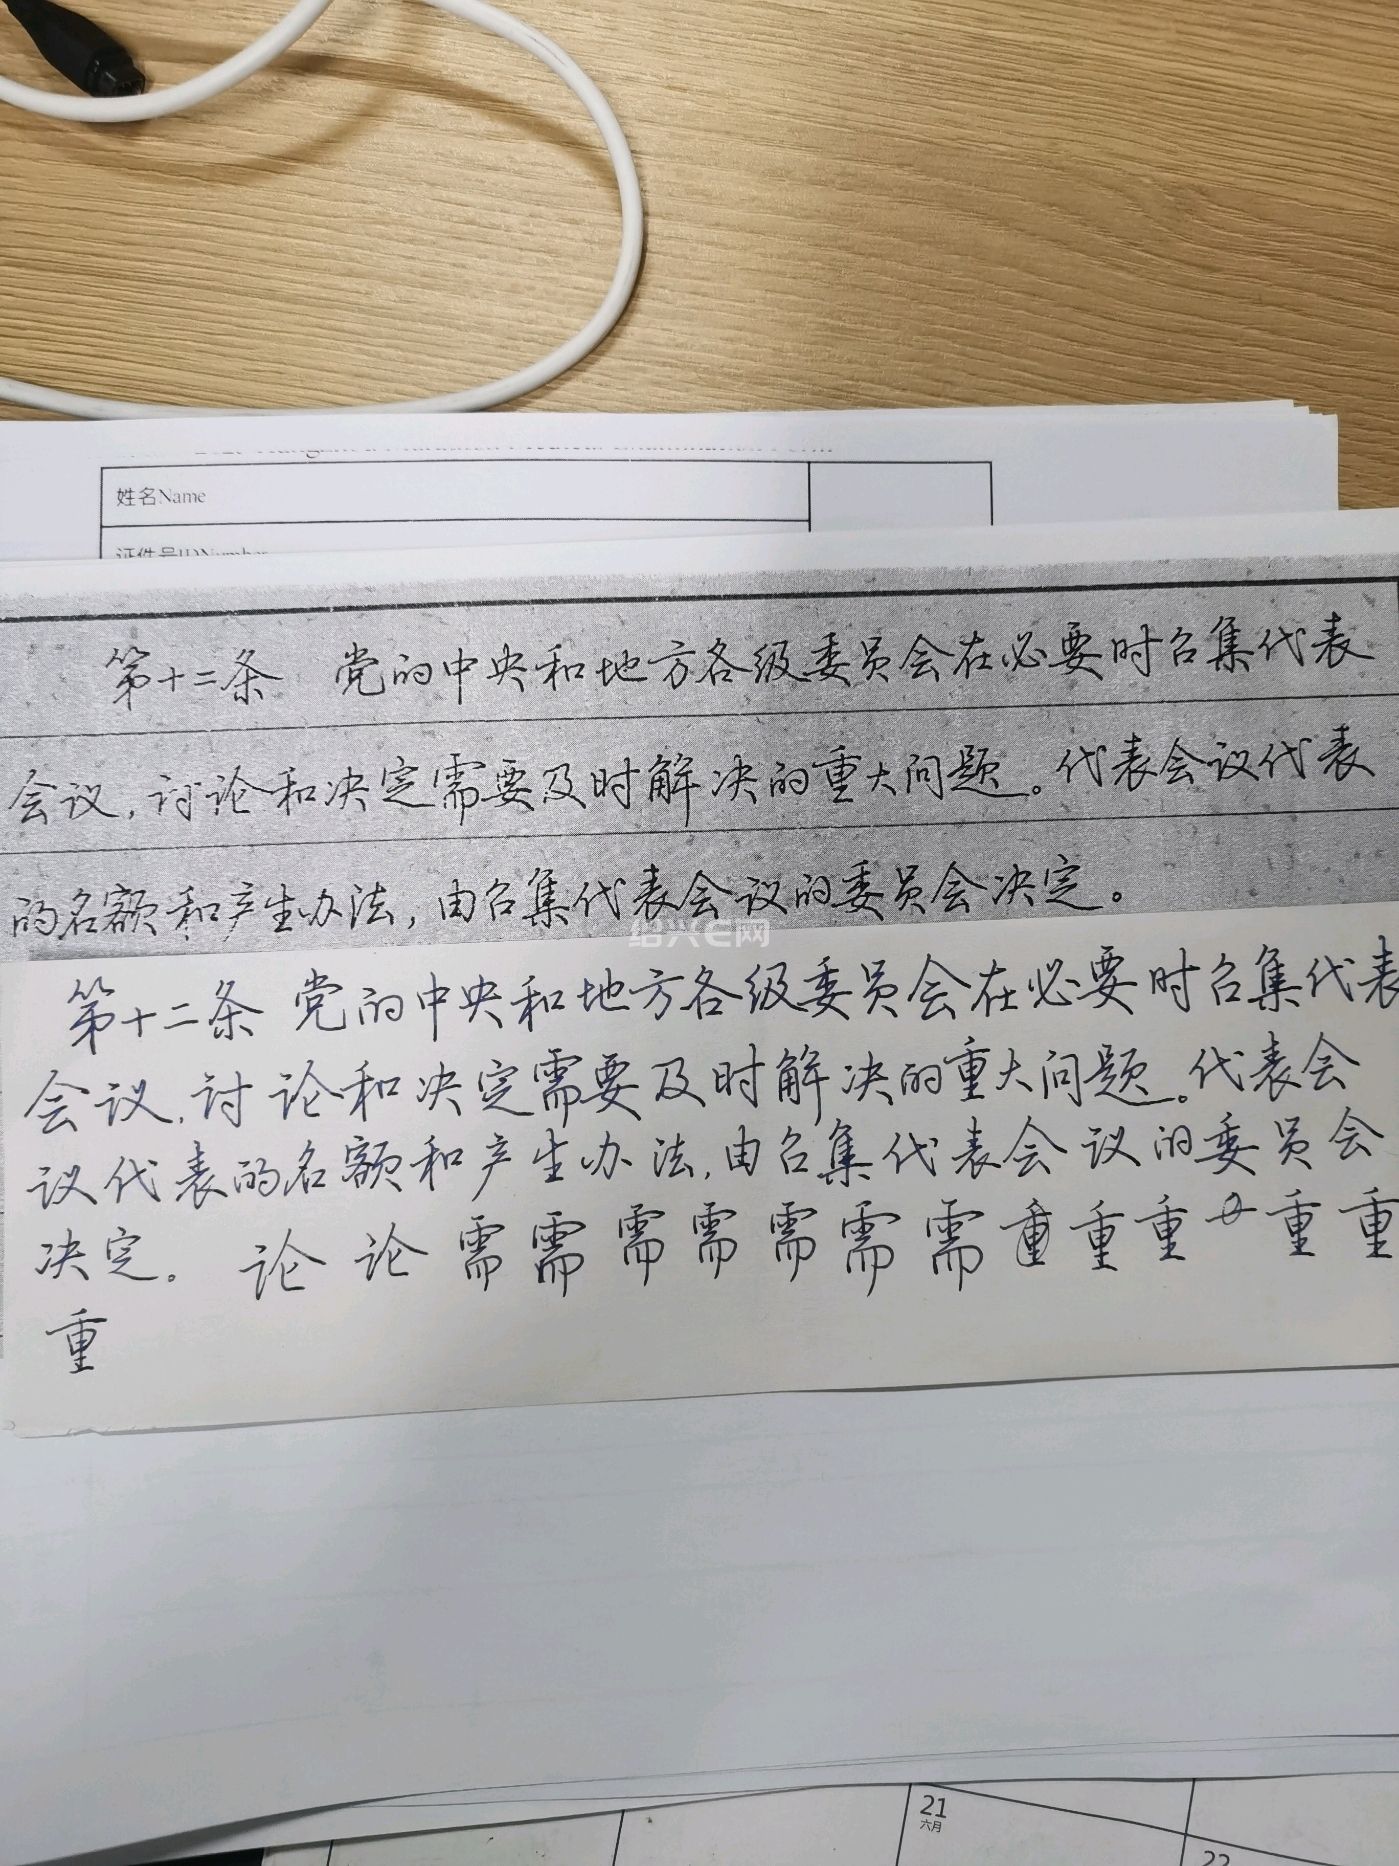 姓名Name
证件号IDNumber
第十二条 党的中央和地方各级委员会在必要时召集代表
会议，讨论和决定需要及时解决的重大问题。代表会议代表
的名额和产生办法，由召集代表会议的委员会决定。
绍兴E网
第十二条 党的中央和地方各级委员会在必要时召集代表
会议，讨论和决定需要及时解决的重大问题。代表会
议代表的名额和产生办法，由召集代表会议的委员会
决定。 论 论 需 需 需 需 需 需 需 重 重 重 重 重
重
21
六月
22